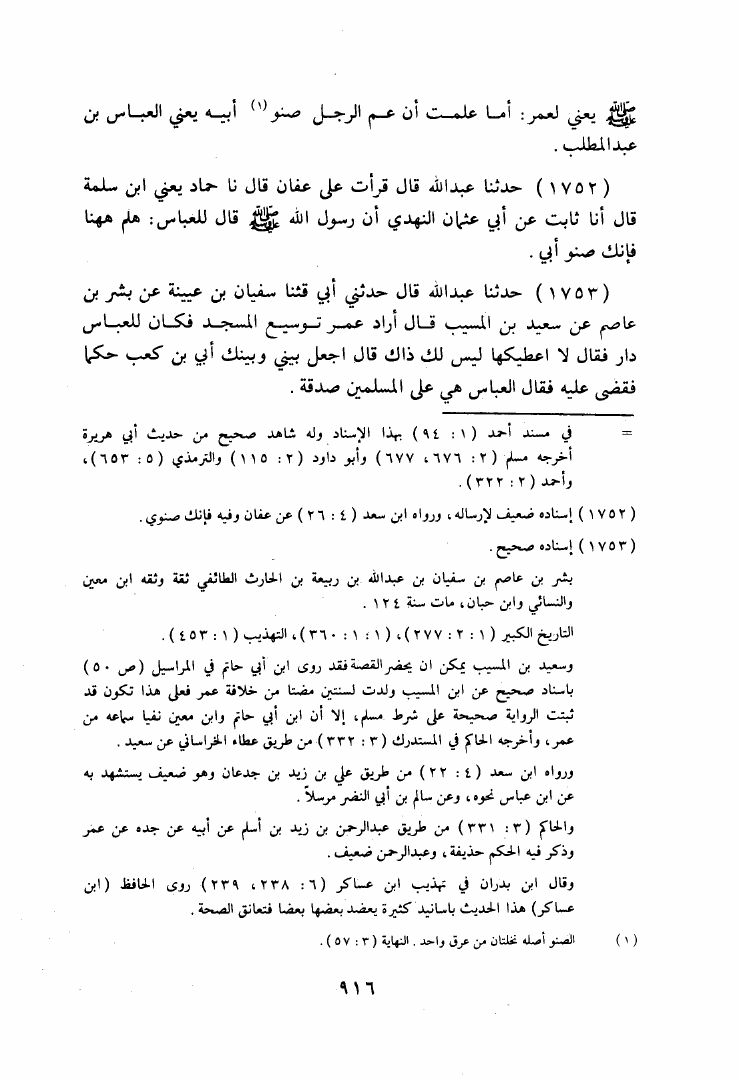 ﷺ يعني لعمر: أما علمت أن عم الرجل صنو (١) أبيه يعني العباس بن
عبدالمطلب.
(١٧٥٢) حدثنا عبدالله قال قرأت على عفان قال نا حماد يعني ابن سلمة
قال أنا ثابت عن أبي عثمان النهدي أن رسول الله ﷺ قال للعباس: هلم ههنا
فإنك صنو أبي.
(١٧٥٣) حدثنا عبدالله قال حدثني أبي قثنا سفيان بن عيينة عن بشر بن
عاصم عن سعيد بن المسيب قال أراد عمر توسيع المسجد فكان للعباس
دار فقال لا اعطيكها ليس لك ذاك قال اجعل بيني وبينك أبي بن كعب حكما
فقضى عليه فقال العباس هي على المسلمين صدقة.
= في مسند أحمد (١: ٩٤) بهذا الإسناد وله شاهد صحيح من حديث أبي هريرة
أخرجه مسلم (٢: ٦٧٦، ٦٧٧) وأبو داود (٢: ١١٥) والترمذي (٥: ٦٥٣)،
وأحمد (٢: ٣٢٢).
(١٧٥٢) إسناده ضعيف لإرساله، ورواه ابن سعد (٤: ٢٦) عن عفان وفيه فإنك صنوي.
(١٧٥٣) إسناده صحيح.
بشر بن عاصم بن سفيان بن عبدالله بن ربيعة بن الحارث الطائفي ثقة وثقه ابن معين
والنسائي وابن حبان، مات سنة ١٢٤.
التاريخ الكبير (١: ٢: ٢٧٧)، (١: ١: ٣٦٠)، التهذيب (١: ٤٥٣).
وسعيد بن المسيب يمكن ان يحضر القصة فقد روى ابن أبي حاتم في المراسيل (ص ٥٠)
باسناد صحيح عن ابن المسيب ولدت لسنتين مضتا من خلافة عمر فعلى هذا تكون قد
ثبتت الرواية صحيحة على شرط مسلم، إلا أن ابن أبي حاتم وابن معين نفيا سماعه من
عمر، وأخرجه الحاكم في المستدرك (٣: ٣٣٢) من طريق عطاء الخراساني عن سعيد.
ورواه ابن سعد (٤: ٢٢) من طريق علي بن زيد بن جدعان وهو ضعيف يستشهد به
عن ابن عباس نحوه، وعن سالم بن أبي النضر مرسلاً.
والحاكم (٣: ٣٣١) من طريق عبدالرحمن بن زيد بن أسلم عن أبيه عن جده عن عمر
وذكر فيه الحكم حذيفة، وعبدالرحمن ضعيف.
وقال ابن بدران في تهذيب ابن عساكر (٦: ٢٣٨، ٢٣٩) روى الحافظ (ابن
عساكر) هذا الحديث باسانيد كثيرة يعضد بعضها بعضا فتعانق الصحة.
(١) الصنو أصله نخلتان من عرق واحد. النهاية (٣: ٥٧).
٩١٦